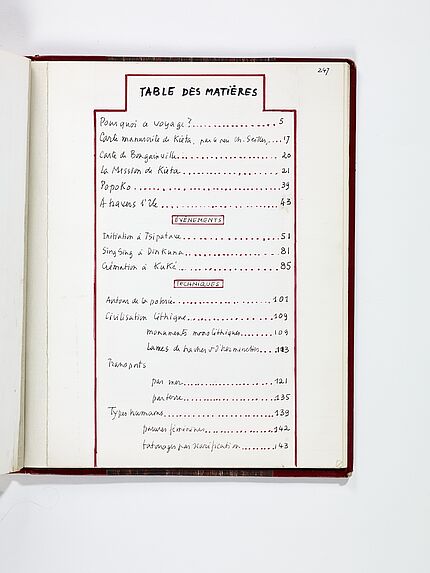 247
TABLE DES MATIÈRES
Pourquoi ce voyage?..... 5
Carte manuscrite de Kiéta, par le Ch. .... 17
Carte de Bougainville..... 20
La Mission de Kiéta..... 21
Popoko..... 39
A travers l'île..... 43
ÉVÉNEMENTS
Initiation à Tsipatave..... 51
Sing Sing à Dinkuna..... 81
Crémation à Kuké..... 85
TECHNIQUES
Autour de la poterie..... 101
Civilisation lithique..... 109
monuments monolithiques..... 109
Lames de haches et d'herminettes.... 113
Transports
par mer..... 121
par terre..... 135
Types humains..... 139
parures féminines..... 142
tatouages par scarification..... 143